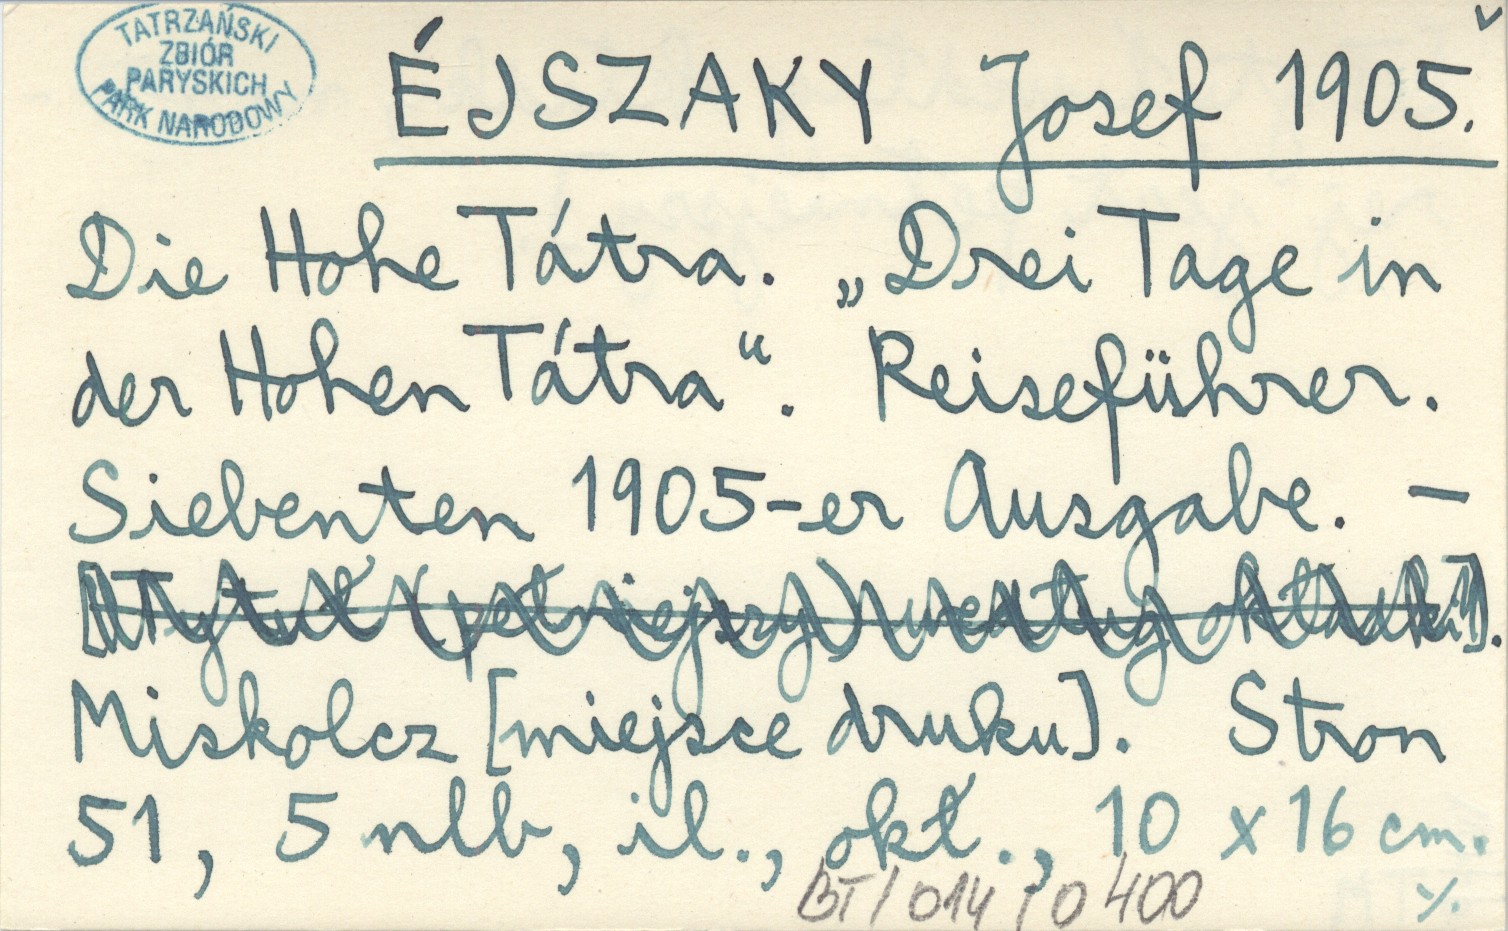 TATRZAŃSKI
ZBIÓR
PARYSKICH
PARK NARODOWY
ÉJSZAKY Josef 1905.
Die Hohe Tátra. „Drei Tage in
der Hohen Tátra“. Reiseführer.
Siebenten 1905-er Ausgabe. —
[Tytuł (pełniejszy) według okładki].
Miskolcz [miejsce druku]. Stron
51, 5 nlb, il., okł., 10 x 16 cm.
BT/014/0400
%.